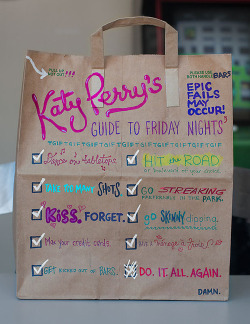 PLEASE USE
BOTH HANDLES
BARS
EPIC
FAILS
MAY
OCCUR!
Katy Perry's
GUIDE TO FRIDAY NIGHTS
TGIF TGIF TGIF TGIF TGIF TGIF TGIF
Dance on tabletops.
HIT the ROAD
or boulevard of your choice.
SHOTS
GO STREAKING
PREFERABLY IN THE PARK.
"KISS" FORGET.
go SKINNY dipping.
Max your credit cards.
GET KICKED OUT OF BARS.
DO. IT. ALL. AGAIN.
DAMN.